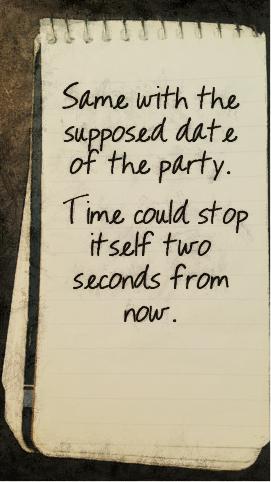 Same with the
supposed date
of the party.
Time could stop
itself two
seconds from
now.